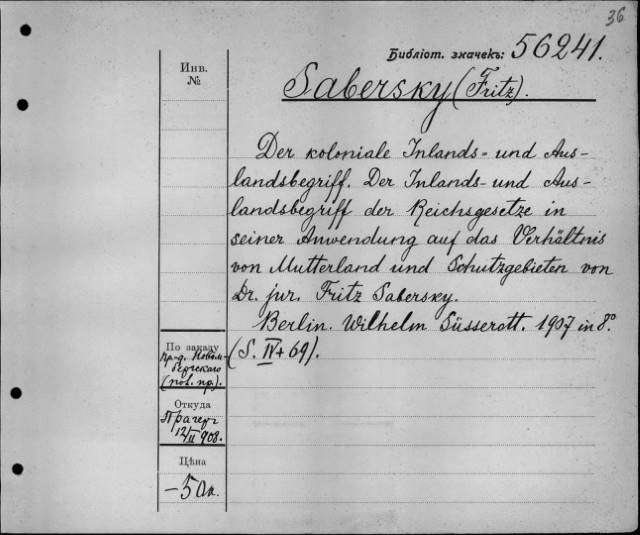 36
Библіот. значекъ: 56241.
Инв.
№
Sabersky (Fritz).
Der koloniale Inlands- und Aus-
landsbegriff. Der Inlands- und Aus-
landsbegriff der Reichsgesetze in
seiner Anwendung auf das Verhältnis
von Mutterland und Schutzgebieten von
Dr. jur. Fritz Sabersky.
Berlin. Wilhelm Süsserott. 1907 in 8º
(S. IV + 69).
По заказу
пр-д. Новом-
бергскаго
Откуда
Прагеръ
12/II 908.
Цѣна